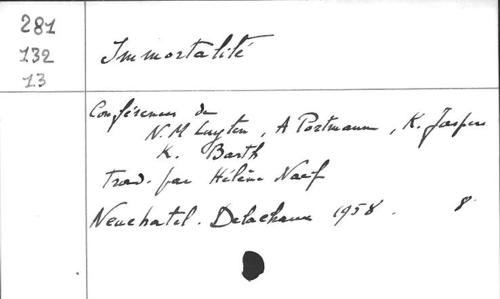 281
132
13
Immortalité
Conférences de
N. M Luyten, A Portmann, K. Jaspers
K. Barth
Trad. par Hélène Naef
Neuchatel. Delachaux 1958. 8